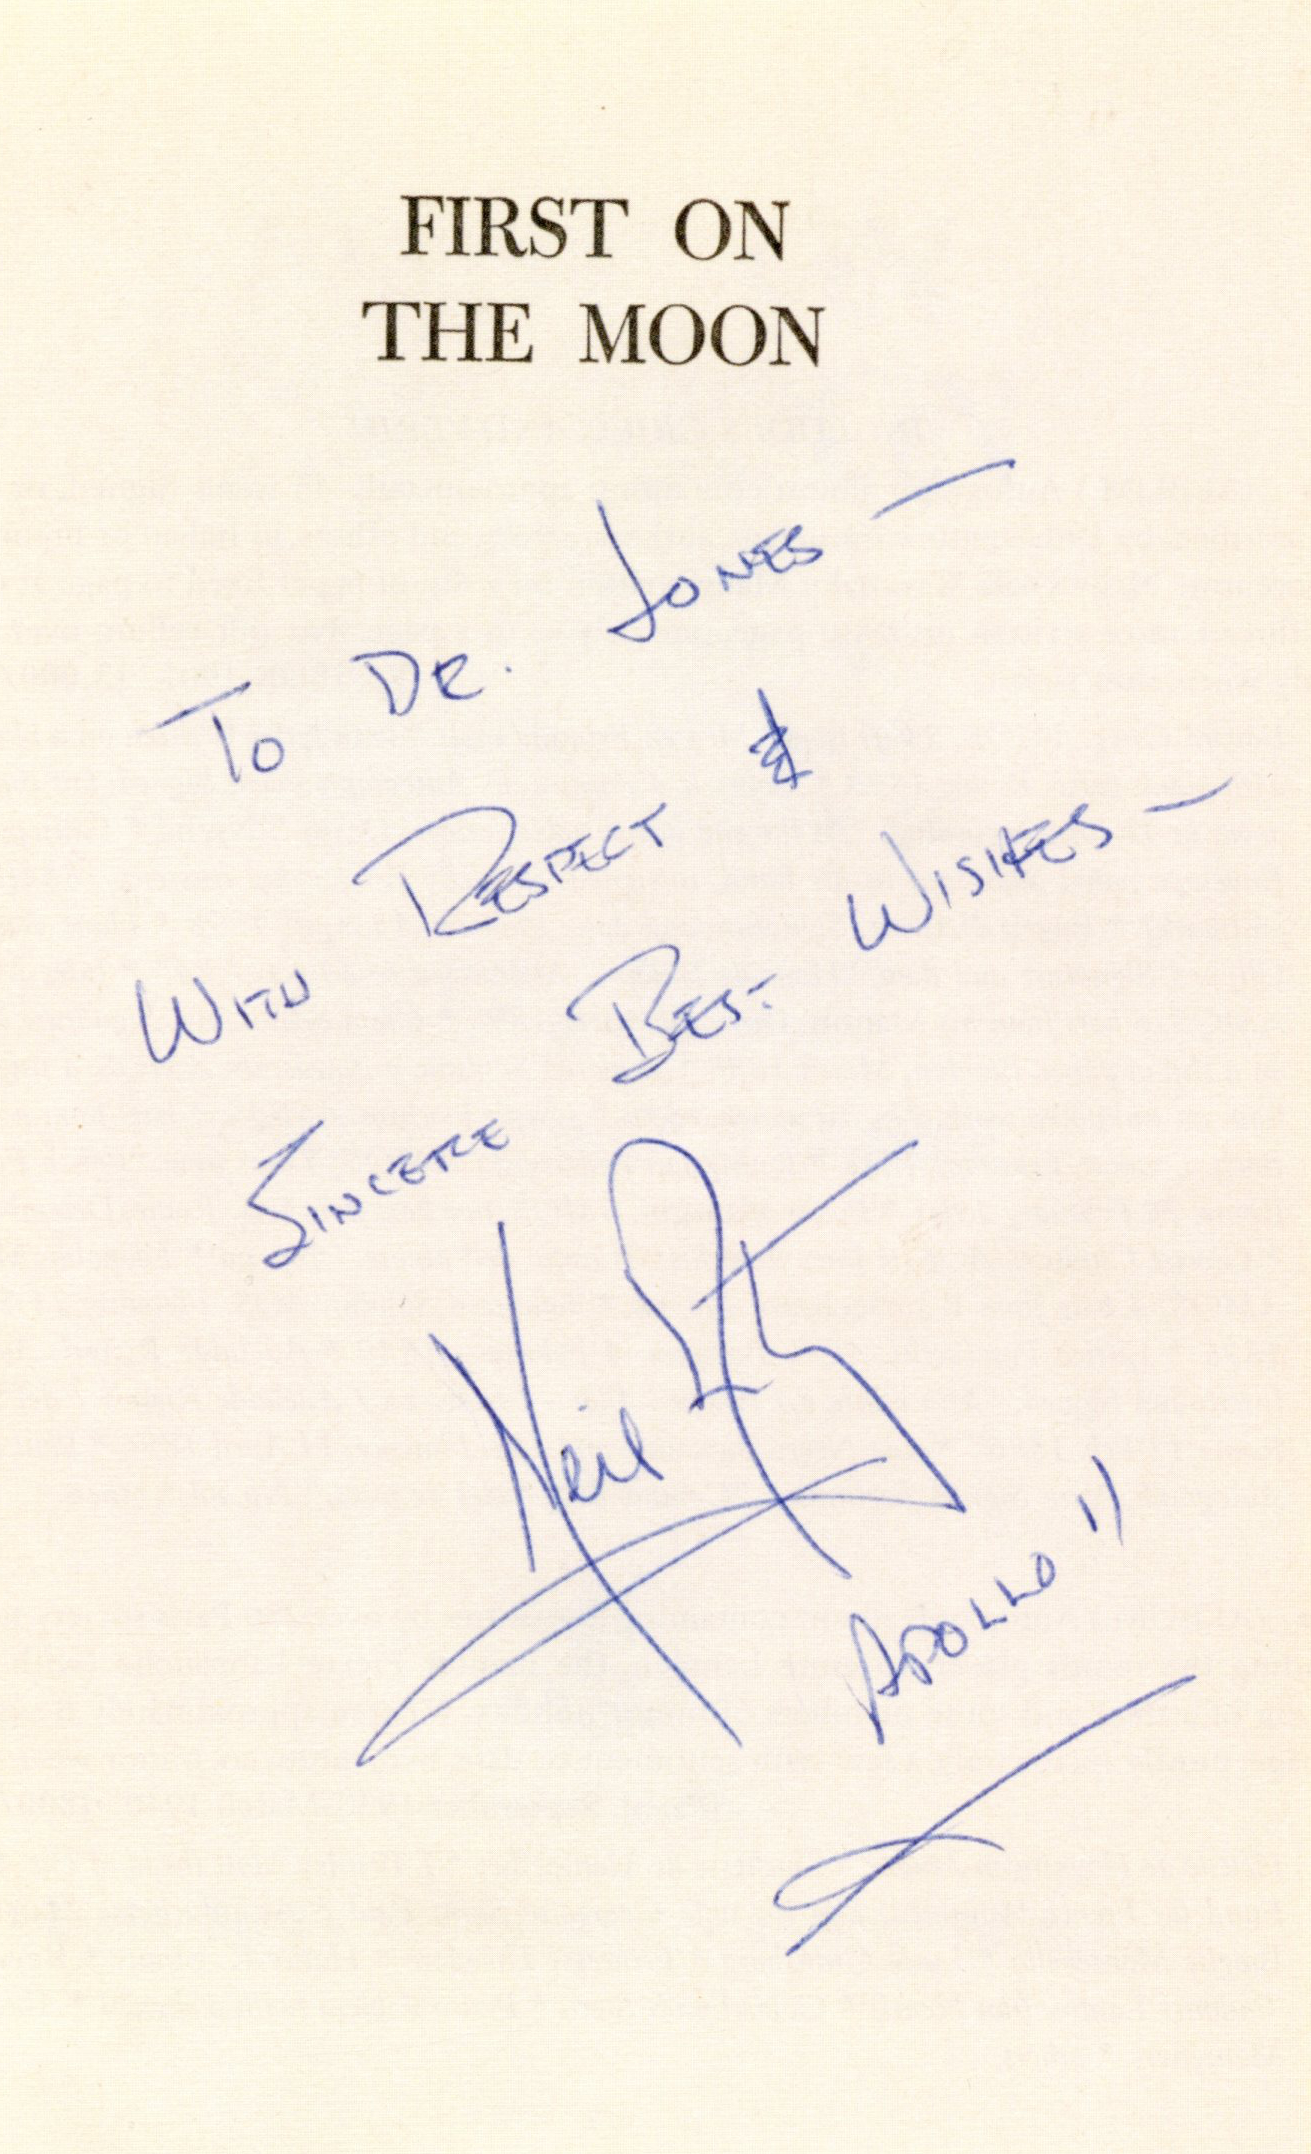 FIRST ON
THE MOON
To DR. JONES —
WITH RESPECT &
SINCERE BEST WISHES —
Neil
APOLLO 11